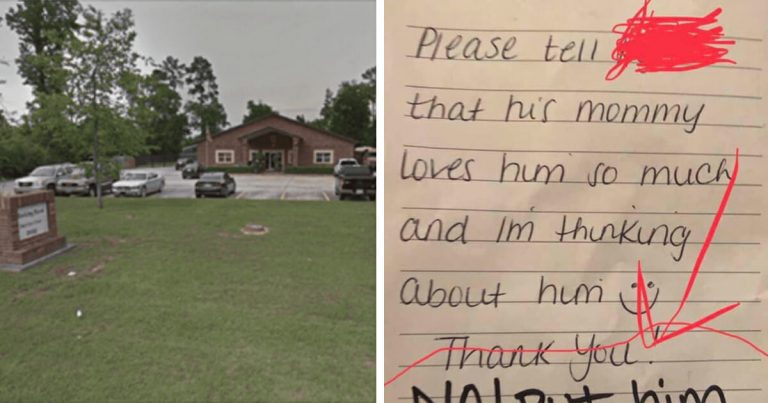 Please tell
that his mommy
loves him so much
and I'm thinking
about him
Thank you!
No! put him